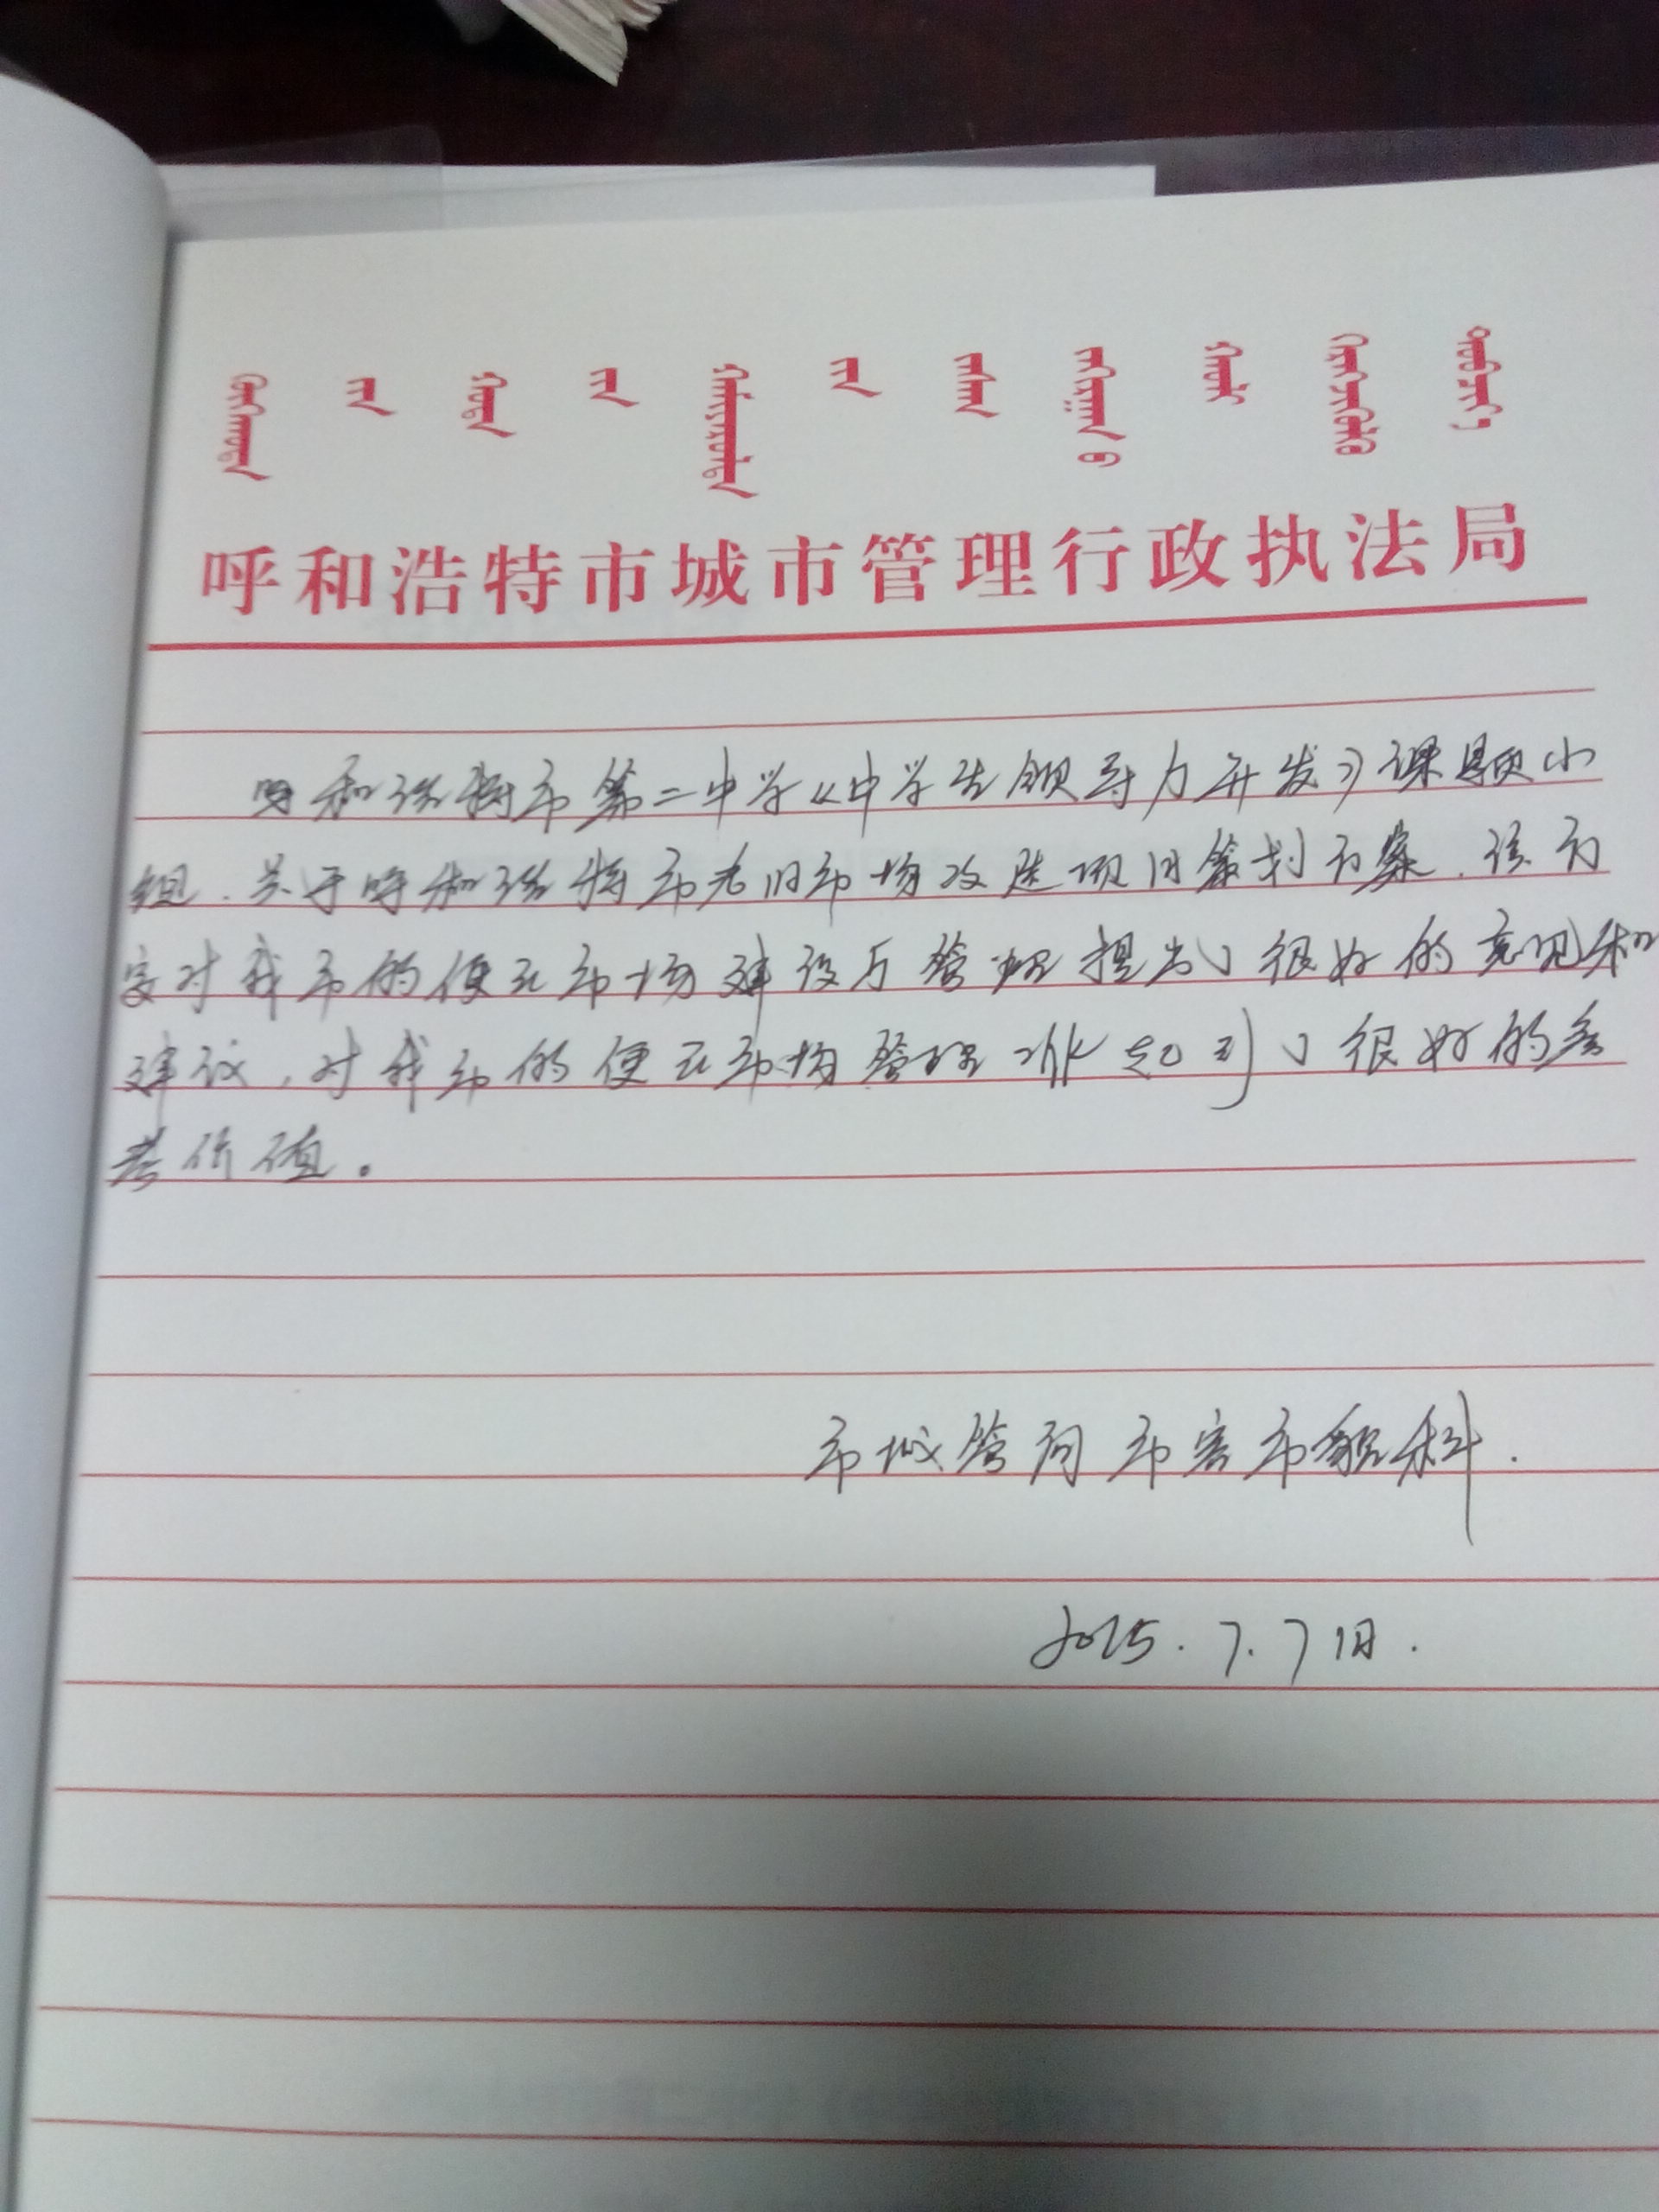 呼和浩特市城市管理行政执法局
呼和浩特市第二中学《中学生领导力开发》课题小
组.关于呼和浩特市老旧市场改造项目策划方案.该方
案对我市的便民市场建设与管理提出了很好的意见和
建议,对我市的便民市场管理工作起到了很好的参
考价值。
市城管局市容市貌科.
2015.7.7日.